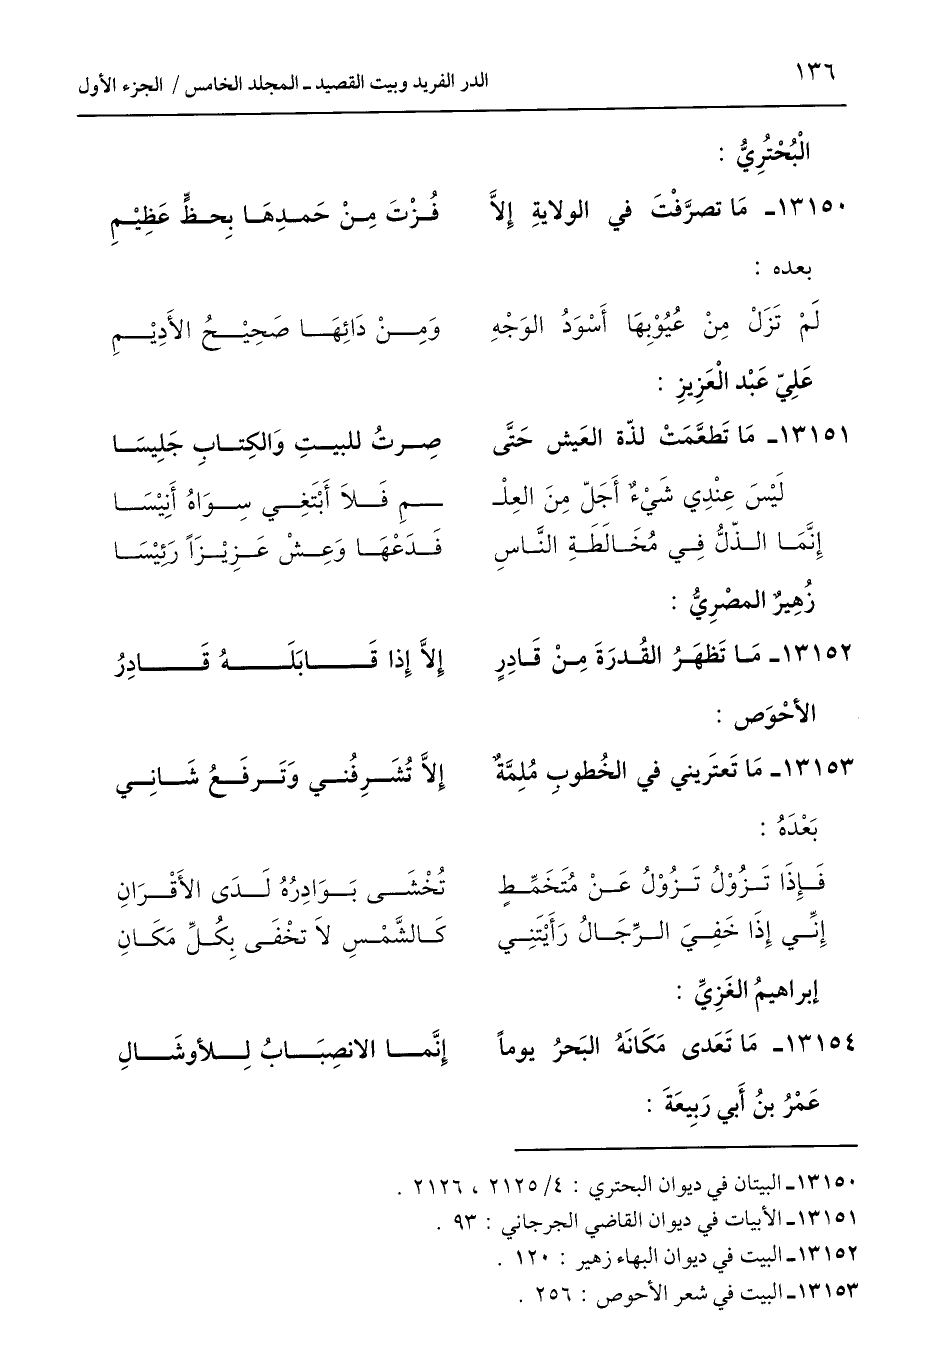 ١٣٦
الدر الفريد وبيت القصيد ـ المجلد الخامس / الجزء الأول
الْبُحْتُرِيُّ :
١٣١٥٠ـ مَا تصرَّفْتَ في الولايةِ إلاَّ فُزْتَ مِنْ حَمدِهَا بِحظٍّ عَظِيْمِ
بعده :
لَمْ تَزَلْ مِنْ عُيُوْبِهَا أَسْوَدُ الوَجْهِ وَمِنْ دَائِهَا صَحِيْحُ الأَدِيْمِ
عَلِيّ عَبْد الْعَزِيزِ :
١٣١٥١ـ مَا تَطعَّمَتْ لذّة العَيش حَتَّى صِرتُ للبيتِ وَالكِتابِ جَلِيسَا
لَيْسَ عِنْدِي شَيْءٌ أَجَلّ مِنَ العِلْـ ـمِ فَلاَ أَبْتَغِي سِوَاهُ أَنِيْسَا
إِنَّمَا الذّلُّ فِي مُخَالَطَةِ النَّاسِ فَدَعْهَا وَعِشْ عَزِيْزَاً رَئِيْسَا
زُهيرٌ المصْرِيُّ :
١٣١٥٢ـ مَا تَظهَرُ القُدرَةَ مِنْ قَادِرٍ إلاَّ إذا قَابَلَهُ قَادِرُ
الأحْوَص :
١٣١٥٣ـ مَا تَعتَريني في الخُطوبِ مُلِمَّةٌ إلاَّ تُشَرِفُني وَتَرفَعُ شَانِي
بَعْدَهُ :
فَإِذَا تَزُوْلُ تَزُوْلُ عَنْ مُتَخَمِّطٍ تُخْشَى بَوَادِرُهُ لَدَى الأَقْرَانِ
إِنِّي إِذَا خَفِيَ الرِّجَالُ رَأَيْتَنِي كَالشَّمْسِ لاَ تخْفَى بِكُلِّ مَكَانِ
إبراهيمُ الغَزِيِّ :
١٣١٥٤ـ مَا تَعَدى مَكَانَهُ البَحرُ يوماً إنَّما الانصِبَابُ لِلأوشَالِ
عَمْرُ بنُ أَبي رَبِيعَةَ :
١٣١٥٠ـ البيتان في ديوان البحتري : ٤/ ٢١٢٥ ، ٢١٢٦ .
١٣١٥١ـ الأبيات في ديوان القاضي الجرجاني : ٩٣ .
١٣١٥٢ـ البيت في ديوان البهاء زهير : ١٢٠ .
١٣١٥٣ـ البيت في شعر الأحوص : ٢٥٦ .